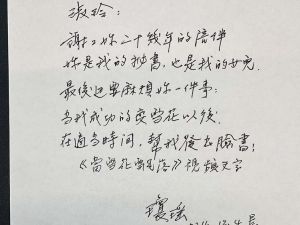 淑玲：
謝謝妳二十幾年的陪伴
妳是我的秘書，也是我的女兒
最後還要麻煩妳一件事：
當我成功的變雪花以後，
在適當時間，幫我發去臉書！
《當雪花飄落》視頻及文字
瓊瑤